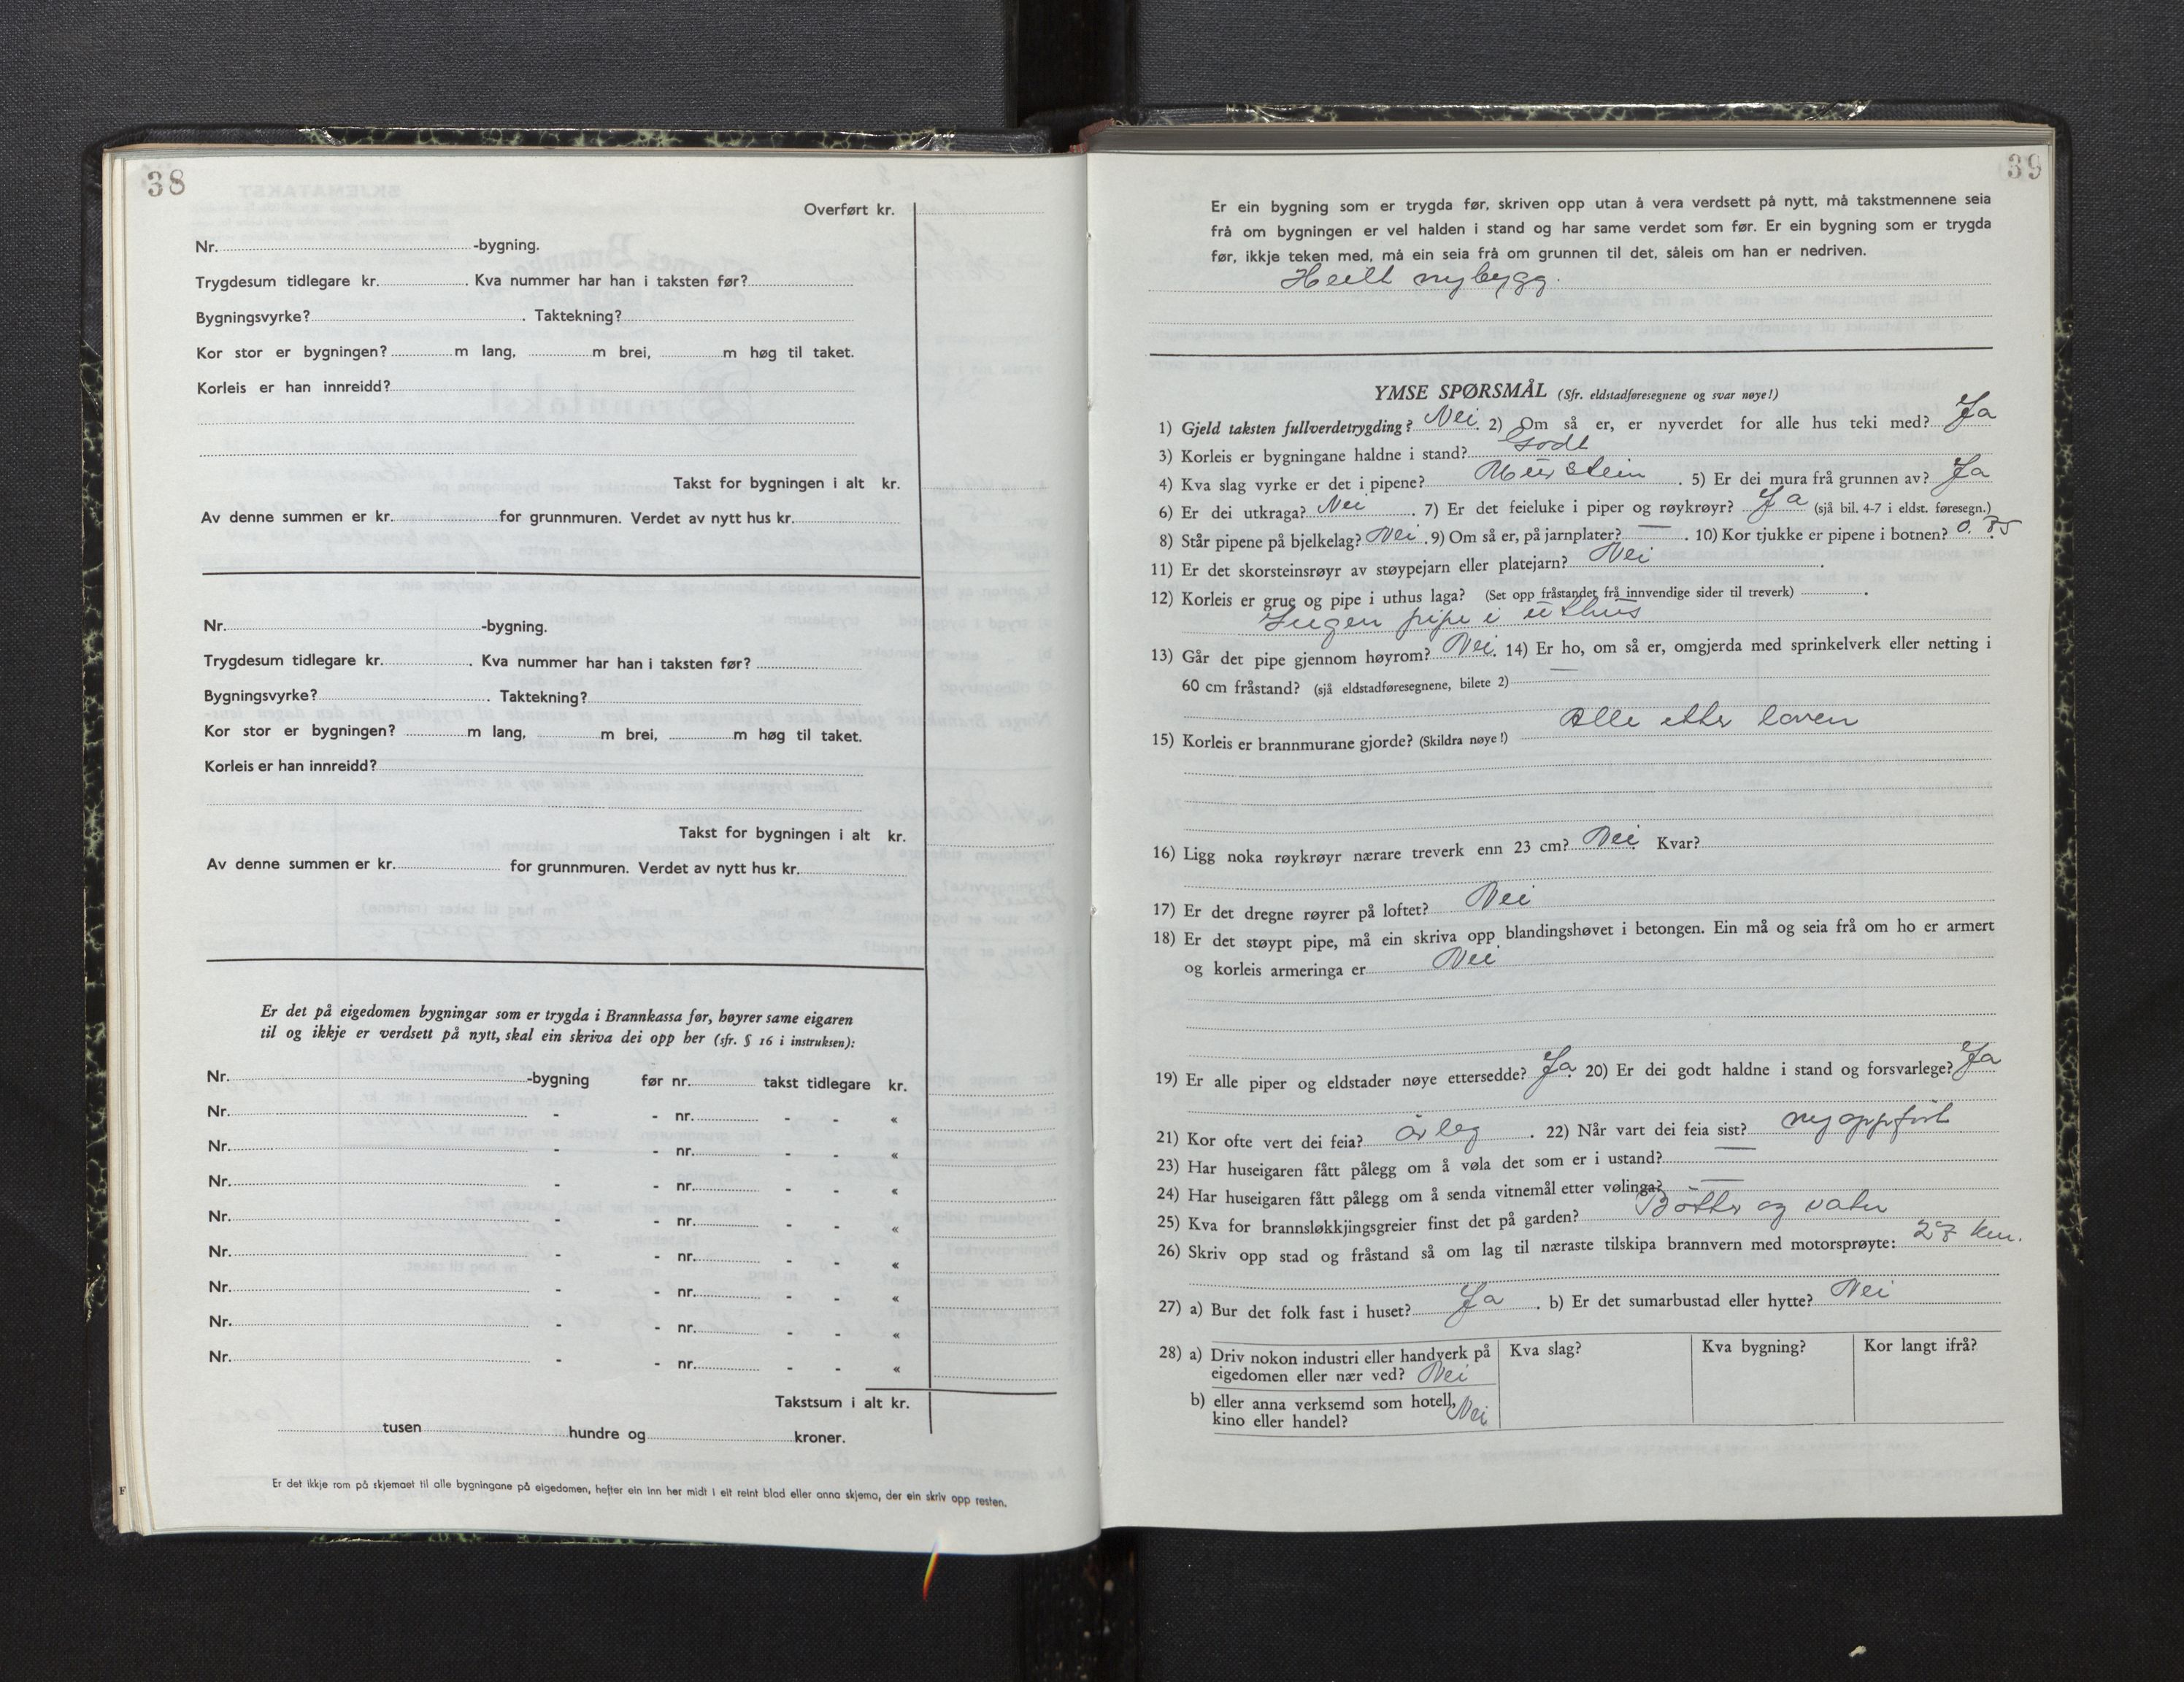 38
Overført kr.
Nr. -bygning.
Trygdesum tidlegare kr. . Kva nummer har han i taksten før?
Bygningsvyrke? . Taktekning?
Kor stor er bygningen? m lang, m brei, m høg til taket.
Korleis er han innreidd?
Takst for bygningen i alt kr.
Av denne summen er kr. for grunnmuren. Verdet av nytt hus kr.
Nr. -bygning.
Trygdesum tidlegare kr. . Kva nummer har han i taksten før?
Bygningsvyrke? . Taktekning?
Kor stor er bygningen? m lang, m brei, m høg til taket.
Korleis er han innreidd?
Takst for bygningen i alt kr.
Av denne summen er kr. for grunnmuren. Verdet av nytt hus kr.
Er det på eigedomen bygningar som er trygda i Brannkassa før, høyrer same eigaren
til og ikkje er verdsett på nytt, skal ein skriva dei opp her (sfr. § 16 i instruksen):
Nr. -bygning før nr. takst tidlegare kr.
Nr. - - nr. - - «
Nr. - - nr. - - «
Nr. - - nr. - - «
Nr. - - nr. - - «
Nr. - - nr. - - «
Nr. - - nr. - - «
Nr. - - nr. - - «
Nr. - - nr. - - «
Takstsum i alt kr.
tusen hundre og kroner.
Er det ikkje rom på skjemaet til alle bygningane på eigedomen, hefter ein inn her midt i eit reint blad eller anna skjema, der ein skriv opp resten.
F
39
Er ein bygning som er trygda før, skriven opp utan å vera verdsett på nytt, må takstmennene seia
frå om bygningen er vel halden i stand og har same verdet som før. Er ein bygning som er trygda
før, ikkje teken med, må ein seia frå om grunnen til det, såleis om han er nedriven.
Heilt nybygg.
YMSE SPØRSMÅL (Sfr. eldstadføresegnene og svar nøye!)
1) Gjeld taksten fullverdetrygding? Nei. 2) Om så er, er nyverdet for alle hus teki med? Ja
3) Korleis er bygningane haldne i stand? Godt
4) Kva slag vyrke er det i pipene? Murstein . 5) Er dei mura frå grunnen av? Ja
6) Er dei utkraga? Nei . 7) Er det feieluke i piper og røykrøyr? Ja (sjå bil. 4-7 i eldst. føresegn.)
8) Står pipene på bjelkelag? Nei . 9) Om så er, på jarnplater? — . 10) Kor tjukke er pipene i botnen?
11) Er det skorsteinsrøyr av støypejarn eller platejarn? Nei .
12) Korleis er grue og pipe i uthus laga? (Set opp fråstandet frå innvendige sider til treverk) .
Ingen pipe i uthus
13) Går det pipe gjennom høyrom? Nei. 14) Er ho, om så er, omgjerda med sprinkelverk eller netting i
60 cm fråstand? (sjå eldstadføresegnene, bilete 2) —
15) Korleis er brannmurane gjorde? (Skildra nøye!) Alle etter loven
16) Ligg noka røykrøyr nærare treverk enn 23 cm? Nei Kvar?
17) Er det dregne røyrer på loftet? Nei
18) Er det støypt pipe, må ein skriva opp blandingshøvet i betongen. Ein må og seia frå om ho er armert
og korleis armeringa er Nei
19) Er alle piper og eldstader nøye ettersedde? Ja. 20) Er dei godt haldne i stand og forsvarlege? Ja
21) Kor ofte vert dei feia? årleg . 22) Når vart dei feia sist? ny oppført
23) Har huseigaren fått pålegg om å vøla det som er i ustand? —
24) Har huseigaren fått pålegg om å senda vitnemål etter vølinga? —
25) Kva for brannsløkkjingsgreier finst det på garden? Bøtter og vatn
26) Skriv opp stad og fråstand så om lag til næraste tilskipa brannvern med motorsprøyte: km.
27) a) Bur det folk fast i huset? Ja . b) Er det sumarbustad eller hytte? Nei
28) a) Driv nokon industri eller handverk på Kva slag? Kva bygning? Kor langt ifrå?
eigedomen eller nær ved? Nei
b) eller anna verksemd som hotell, Nei
kino eller handel?